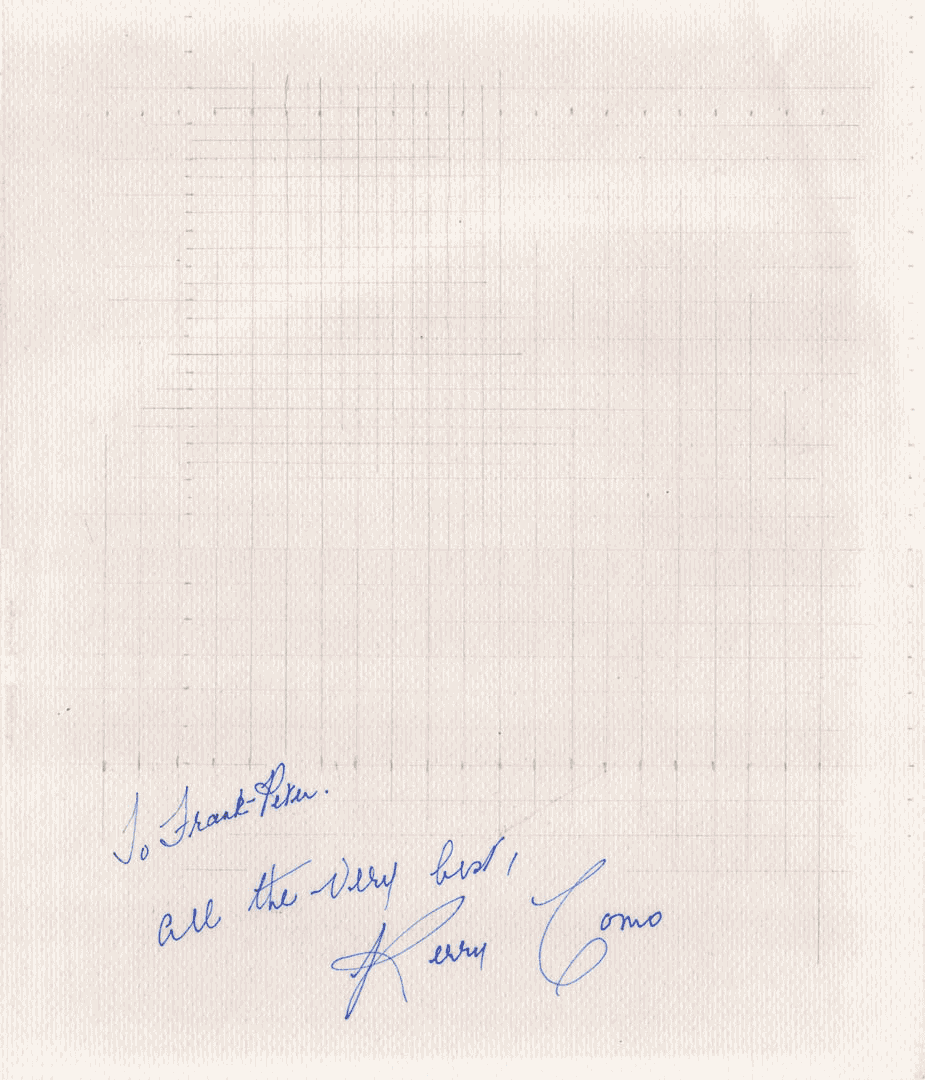 To Frank-Peter.
all the very best,
Perry Como